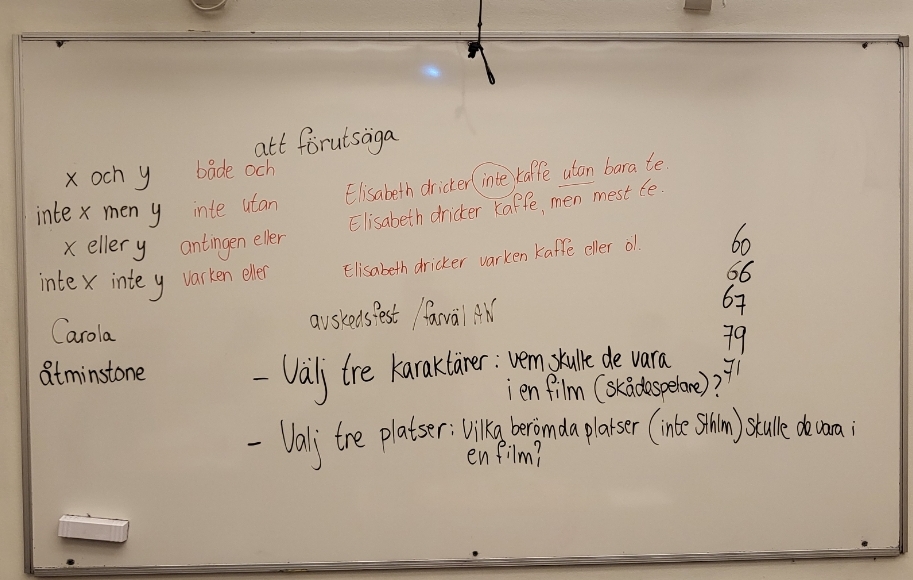 att förutsäga
x och y både och
inte x men y inte utan
x eller y antingen eller
inte x inte y varken eller
Elisabeth dricker inte kaffe utan bara te.
Elisabeth dricker kaffe, men mest te.
Elisabeth dricker varken kaffe eller öl.
60
66
67
79
71
Carola
åtminstone
avskedsfest / farväl AN
- Välj tre karaktärer: vem skulle de vara
i en film (skådespelare)?
- Valj tre platser: Vilka berömda platser (inte Sthlm) skulle de vara i
en film?